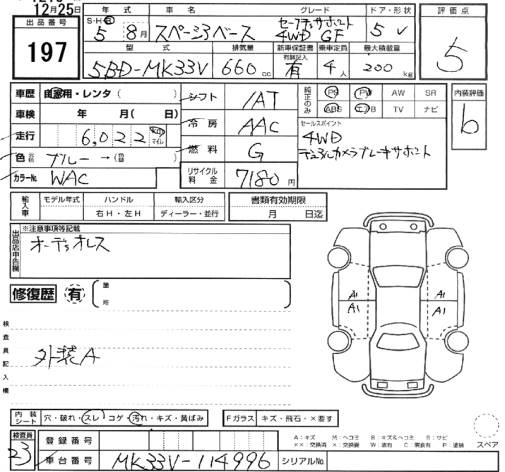 12月25日
出品番号
197
年式 車名 グレード ドア・形状 評価点
S・H・R 5年 8月 スペーシアベース セーフティサポート 4WD GF 5 V
5
型式 排気量 新車保証書 乗車定員 最大積載量
5BD-MK33V 660cc 記録簿記入 有 4人 200kg
車歴 自家用・レンタ ( )
シフト IAT
純正のみ PS PW AW SR
ABS エアB TV ナビ
内装評価
b
車検 年 月 ( 日)
冷房 AAC
セールスポイント
4WD
デュアルカメラブレーキサポート
走行 6,022 km マイル
燃料 G
色 ブルー → ( )
カラーNo. WAC
リサイクル料金 7180円
輸入車 モデル年式 ハンドル 輸入区分 書類有効期限
右H・左H ディーラー・並行 月 日迄
出品店申告欄 ※注意事項等記載
オーディオレス
修復歴 有 ( 箇所 )
A1 A1
A1 A1
検査員記入欄
外装A
内装シート 穴・破れ・スレ・コゲ・汚れ・キズ・黄ばみ
Fガラス キズ・飛石・×要す
検査員
23
登録番号
A:キズ M:ヘコミ B:キズ&ヘコミ S:サビ
××:交換済 ×:交換要 W:波有 C:腐食有 P:塗装
スペア
車台番号 MK33V-114996 シリアルNo.